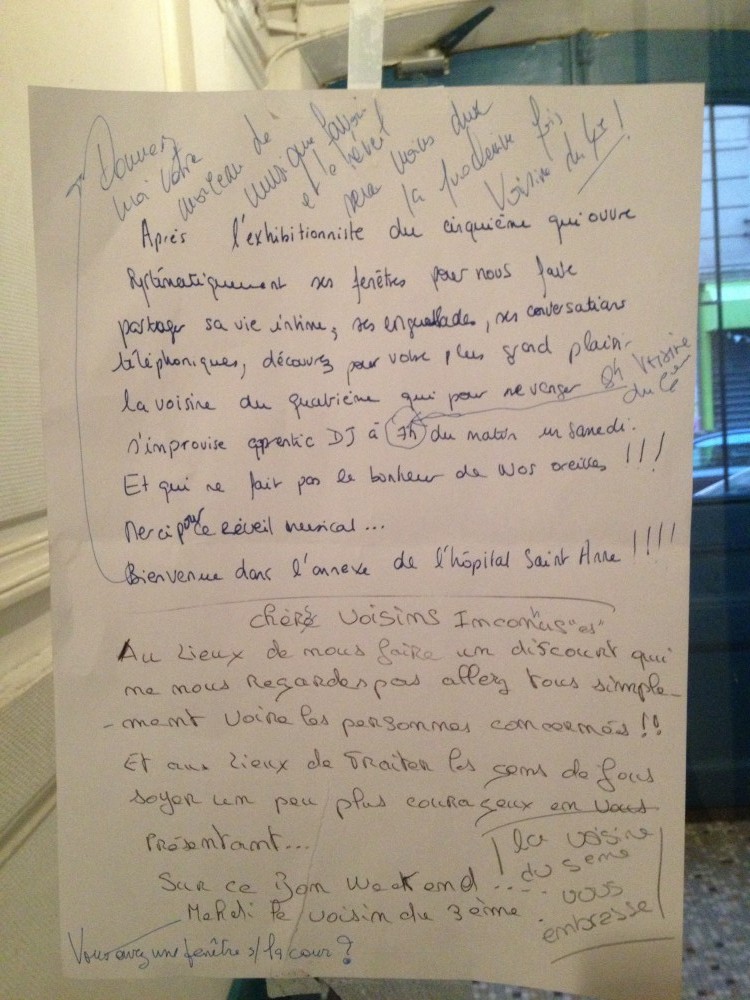 Donnez
moi votre
morceau de
musique favori
et le réveil
sera moins dur
la prochaine fois
Voisine du 4e !
Après l'exhibitionniste du cinquième qui ouvre
systématiquement ses fenêtres pour nous faire
partager sa vie intime, ses engueulades, ses conversations
téléphoniques, découvrez pour votre plus grand plaisir
la voisine du quatrième qui pour se venger
8h Voisine
du 4e
s'improvise apprentie DJ à 7h du matin un samedi.
Et qui ne fait pas le bonheur de nos oreilles !!!
Merci pour ce réveil musical...
Bienvenue dans l'annexe de l'hôpital Saint Anne !!!!
chèrs voisins Inconnus "es"
Au lieux de nous faire un discourt qui
ne nous regardes pas allez tous simple-
-ment voire les personnes concernés !!
Et aux lieux de traiter les gens de fous
soyer un peu plus courageux en vous
Présentant...
Sur ce Bon Weekend ....
Mehdi le voisin du 3ème.
la voisine
du 5eme
vous
embrasse
Vous avez une fenêtre s/ la cour ?